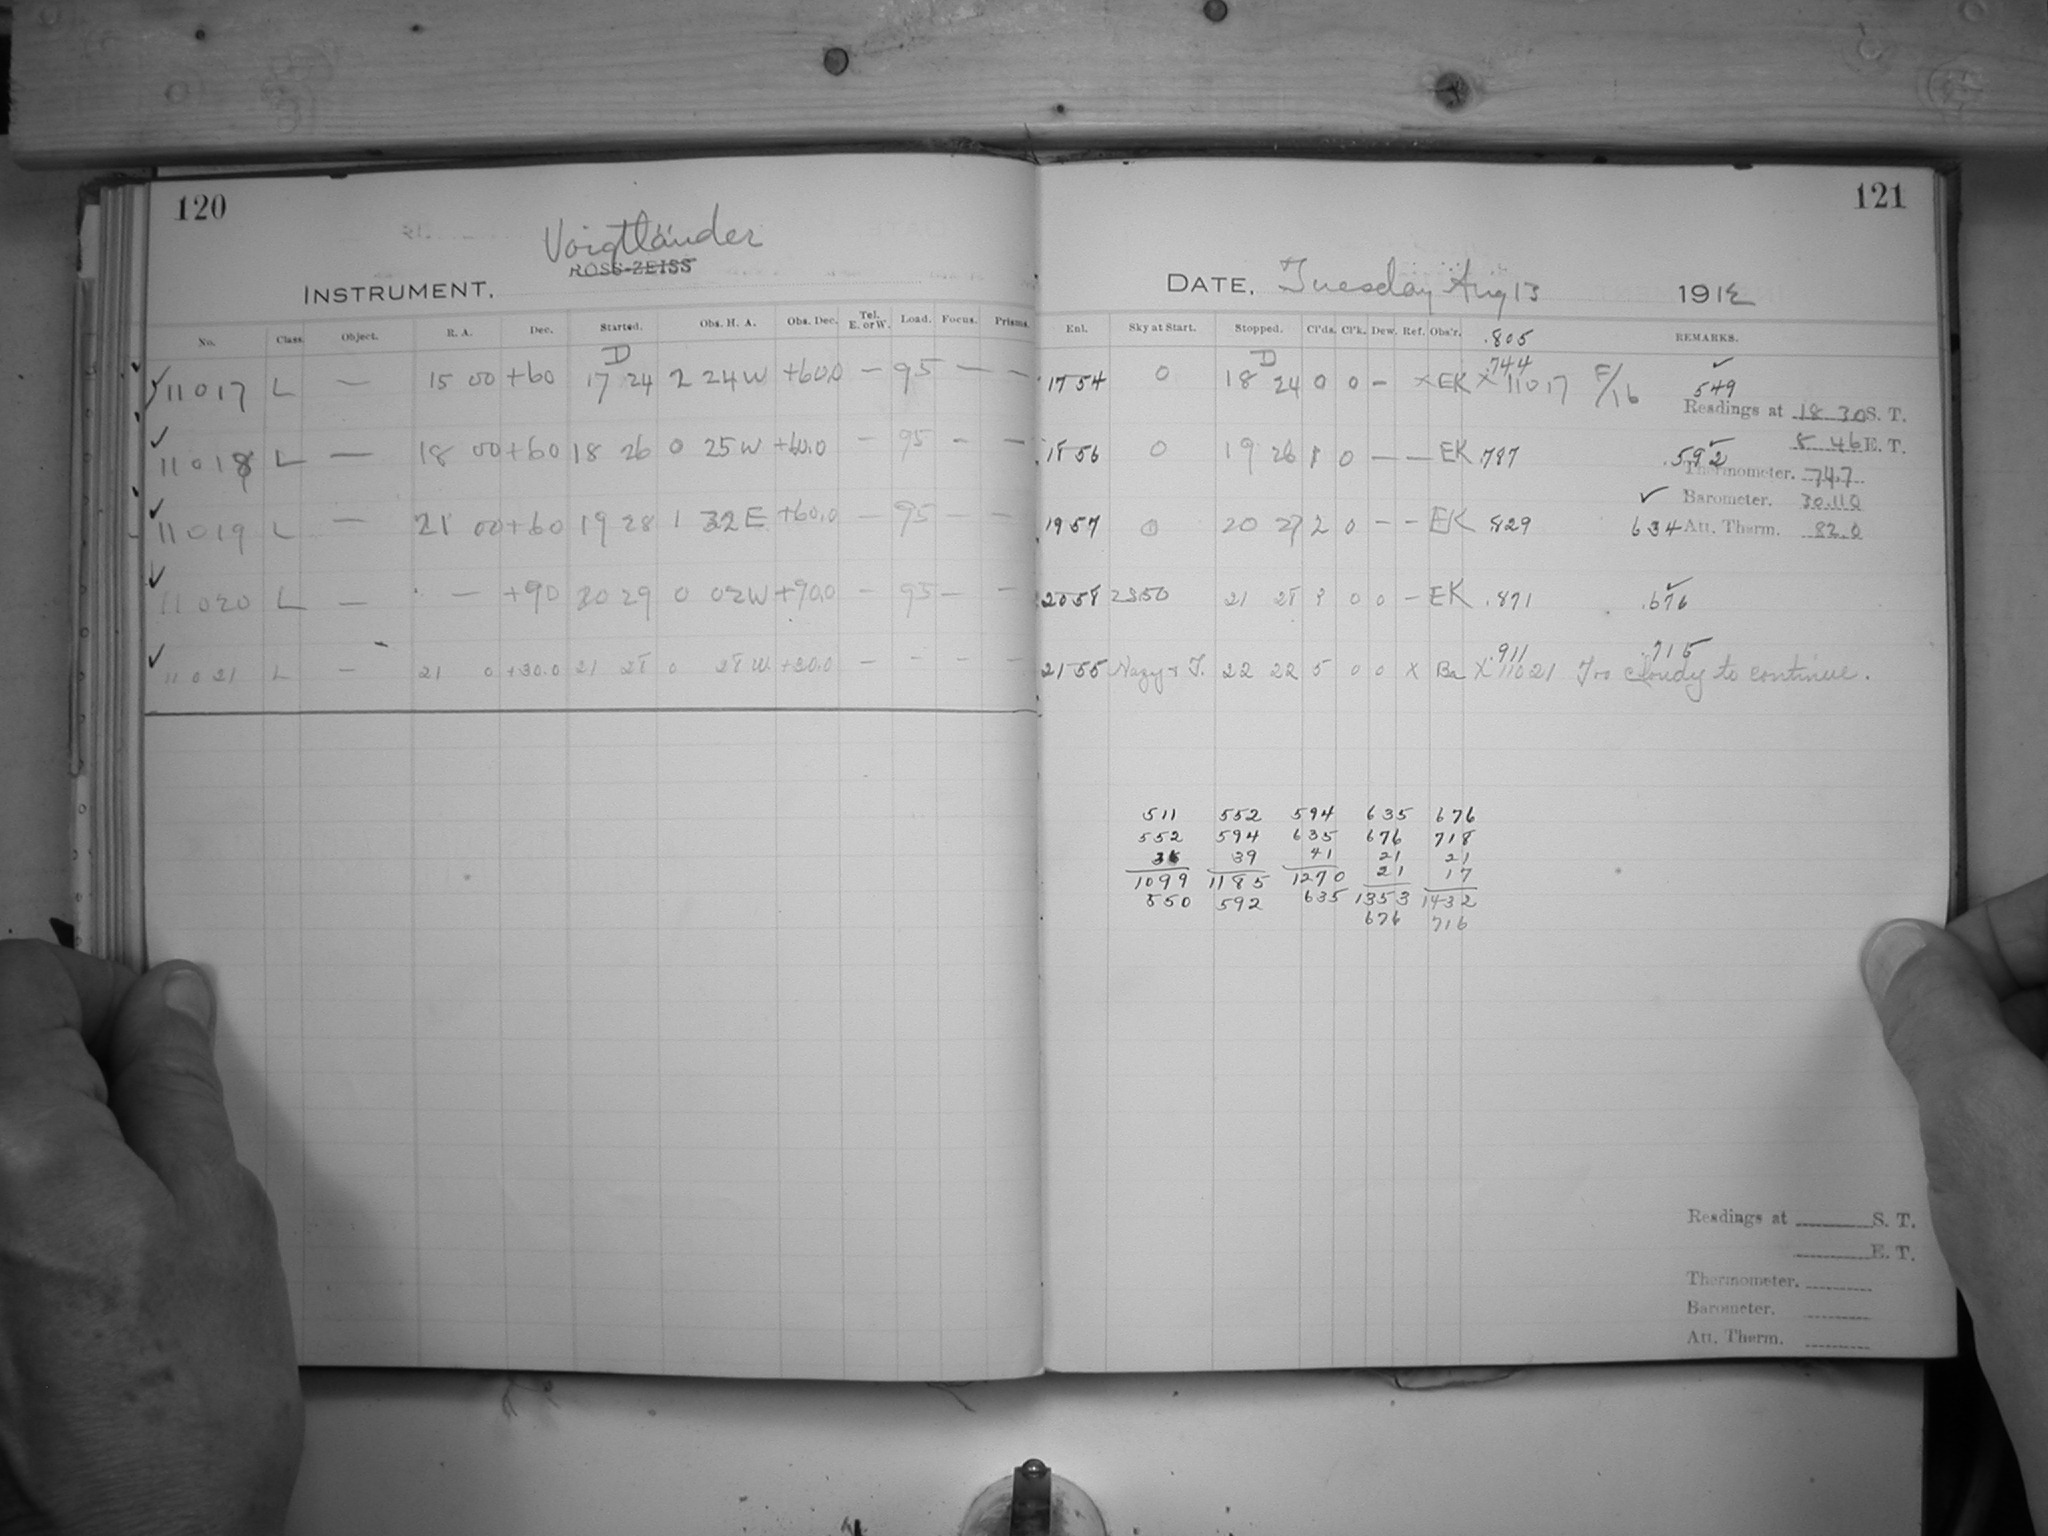 120
Voigtländer
ROSS-ZEISS
INSTRUMENT.
No. Class. Object. R. A. Dec. Started. Obs. H. A. Obs. Dec. Tel. E. or W. Load. Focus. Prisms.
D
✓ 11017 L — 15 00 +60 17 24 2 24 W +60.0 — 95 — —
✓ 11018 L — 18 00 +60 18 26 0 25 W +60.0 — 95 — —
✓ 11019 L — 21 00 +60 19 28 1 32 E +60.0 — 95 — —
✓ 11020 L — — +90 20 29 0 02 W +90.0 — 95 — —
✓ 11021 L — 21 0 +30.0 21 28 0 28 W +30.0 — — — —
121
DATE. Tuesday Aug 13 1912
Enl. Sky at Start. Stopped. Cl'ds. Cl'k. Dew. Ref. Obs'r. REMARKS.
.805
D .744 ✓
1754 0 18 24 0 0 — X EK X 11017 F/16 549
Readings at 18 30 S. T.
8 46 E. T.
1856 0 19 26 1 0 — — EK .787 .592 ✓
Thermometer. 74.7
Barometer. 30.110
1957 0 20 27 2 0 — — EK .829 634 ✓
Att. Therm. 82.0
2058 21 28 0 0 — EK .871 .676 ✓
.911 .715
2155 Hazy + 22 22 5 0 0 X Ba X 11021 Too cloudy to continue.
511 552 594 635 676
552 594 635 676 718
36 39 41 21 21
1099 1185 1270 21 17
550 592 635 1353 1432
676 716
Readings at S. T.
E. T.
Thermometer.
Barometer.
Att. Therm.